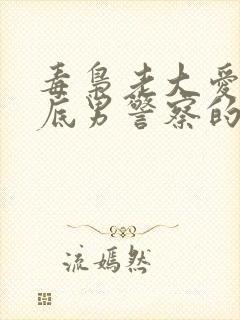 毒枭老大爱
底男警察的
流嫣然